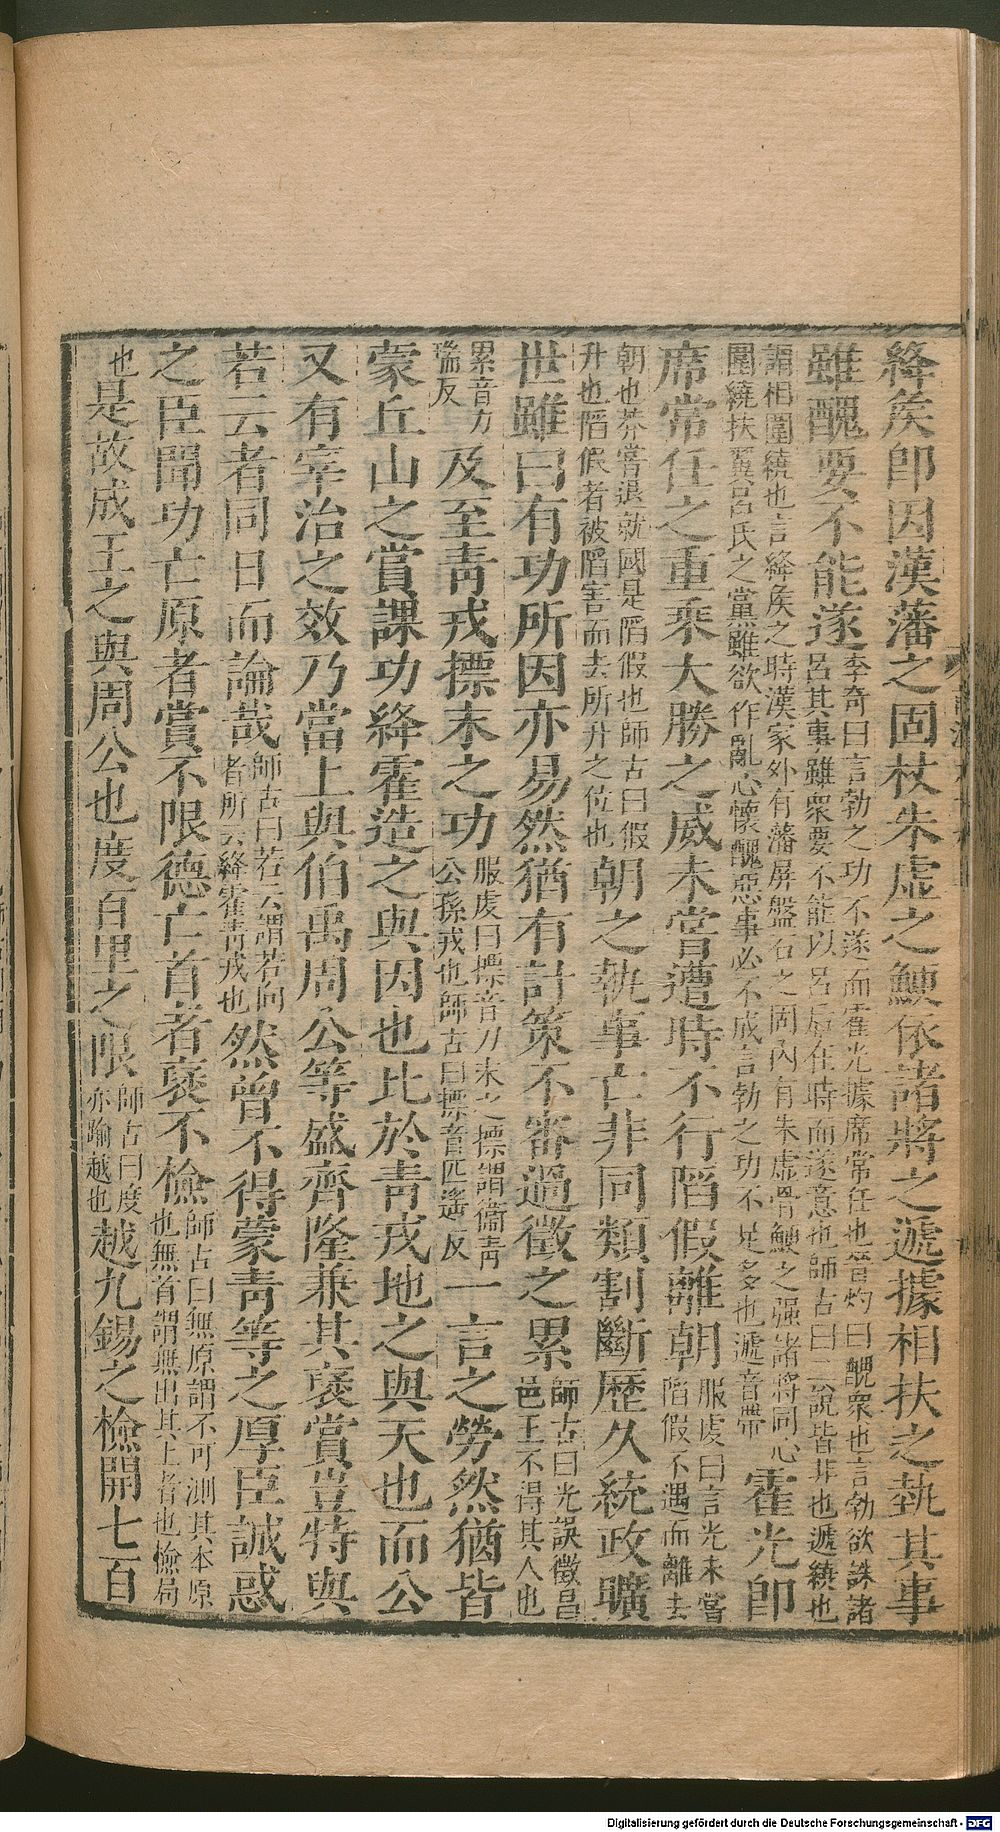 絳矦即因漢藩之固杖朱虛之鯁依諸將之遞據相扶之埶其事
雖醜要不能遂李奇曰言勃之功不遂而霍光據席常任也晉灼曰醜衆也言勃欲誅諸
呂其事雖衆要不能以呂后在時而遂意也師古曰二說皆非也遞繞也
謂相圍繞也言絳矦之時漢家外有藩屏盤石之固內有朱虛骨鯁之強諸將同心
圍繞扶翼呂氏之黨雖欲作亂心懷醜惡事必不成言勃之功不足多也遞音帶霍光即
席常任之重乘大勝之威未嘗遭時不行陷假離朝服虔曰言光未嘗
陷假不遇而離去
朝也莽嘗退就國是陷假也師古曰假
升也陷假者被陷害而去所升之位也朝之執事亡非同類割斷歷久統政曠
世雖曰有功所因亦易然猶有計策不審過徵之累師古曰光誤徵昌
邑王不得其人也
累音力
瑞反及至靑戎摽末之功服虔曰摽音刀末之摽謂衞靑
公孫戎也師古曰摽音匹遙反一言之勞然猶皆
蒙丘山之賞課功絳霍造之與因也比於靑戎地之與天也而公
又有宰治之效乃當上與伯禹周公等盛齊隆兼其襃賞豈特與
若云者同日而論哉師古曰若云謂若向
者所云絳霍靑戎也然曾不得蒙靑等之厚臣誠惑
之臣聞功亡原者賞不限德亡首者襃不檢師古曰無原謂不可測其本原
也無首謂無出其上者也檢局
也是故成王之與周公也度百里之限師古曰度
亦踰越也越九錫之檢開七百
Digitalisierung gefördert durch die Deutsche Forschungsgemeinschaft - DFG